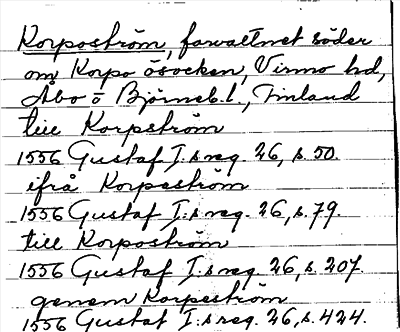 Korpoström, farvattnet söder
om Korpo ösocken, Virmo hd,
Åbo o Björneb. l., Finland
till Korpström
1556 Gustaf I:s reg. 26, s. 50.
ifrå Korpeström
1556 Gustaf I:s reg. 26, s. 79.
till Korpoström
1556 Gustaf I:s reg. 26, s. 207.
genom Korpeström
1556 Gustaf I:s reg. 26, s. 424.